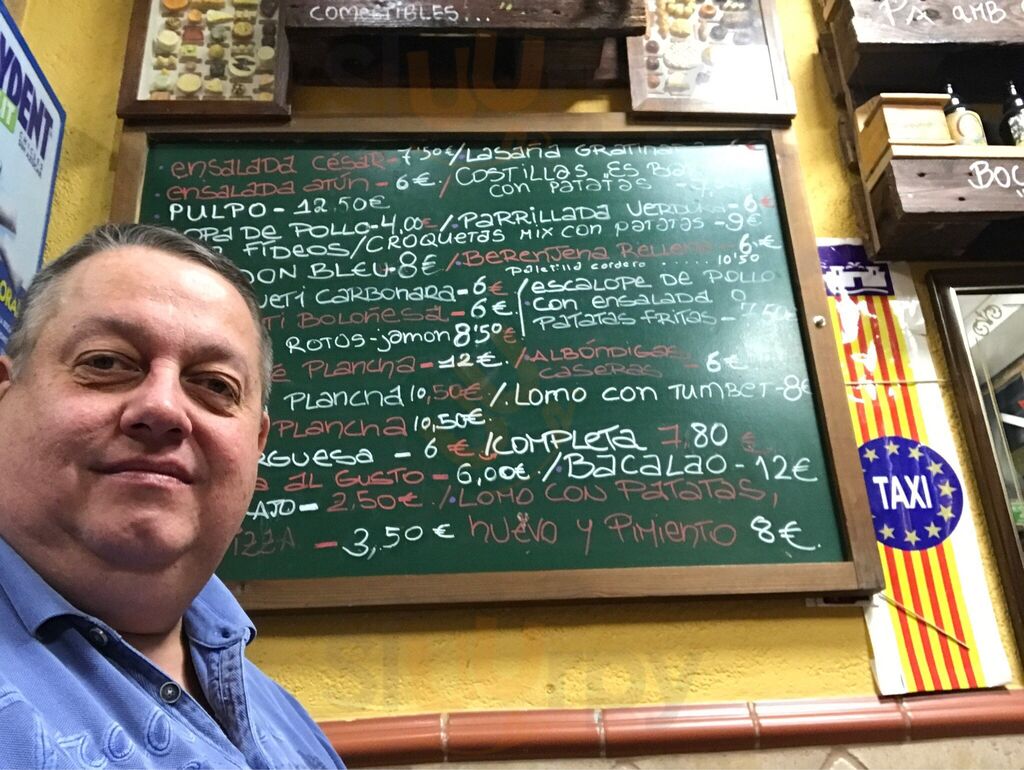 COMESTIBLES...
PA AMB
YDENT
IT
BOC
ENSALADA CÉSAR-7'50€/LASAÑA GRATINADA
ENSALADA ATÚN - 6€ / COSTILLAS
CON PATATAS -
PULPO - 12.50€ / PARRILLADA VERDURA - 6€
OPA DE POLLO-4,00€
FIDEOS/CROQUETAS MIX CON PATATAS -9€
DON BLEU-8€ /BERENJENA RELLENA - 6,€
Paletilla cordero 10'50
UETI CARBONARA-6€ /ESCALOPE DE POLLO
TI BOLOÑESA - 6€ CON ENSALADA O
PATATAS FRITAS - 7,50
ROTOS-JAMON 8'50€
PLANCHA - 12€ /ALBÓNDIGAS
CASERAS 6€
PLANCHA 10,50€ /. LOMO CON TUMBET-8€
PLANCHA 10,50€.
RGUESA - 6 € /COMPLETA 7,80 €
AL GUSTO - 6,00€ /BACALAO - 12€
AJO - 2,50€ /LOMO CON PATATAS,
IZZA - 3,50 € HUEVO Y PIMIENTO 8€.
TAXI